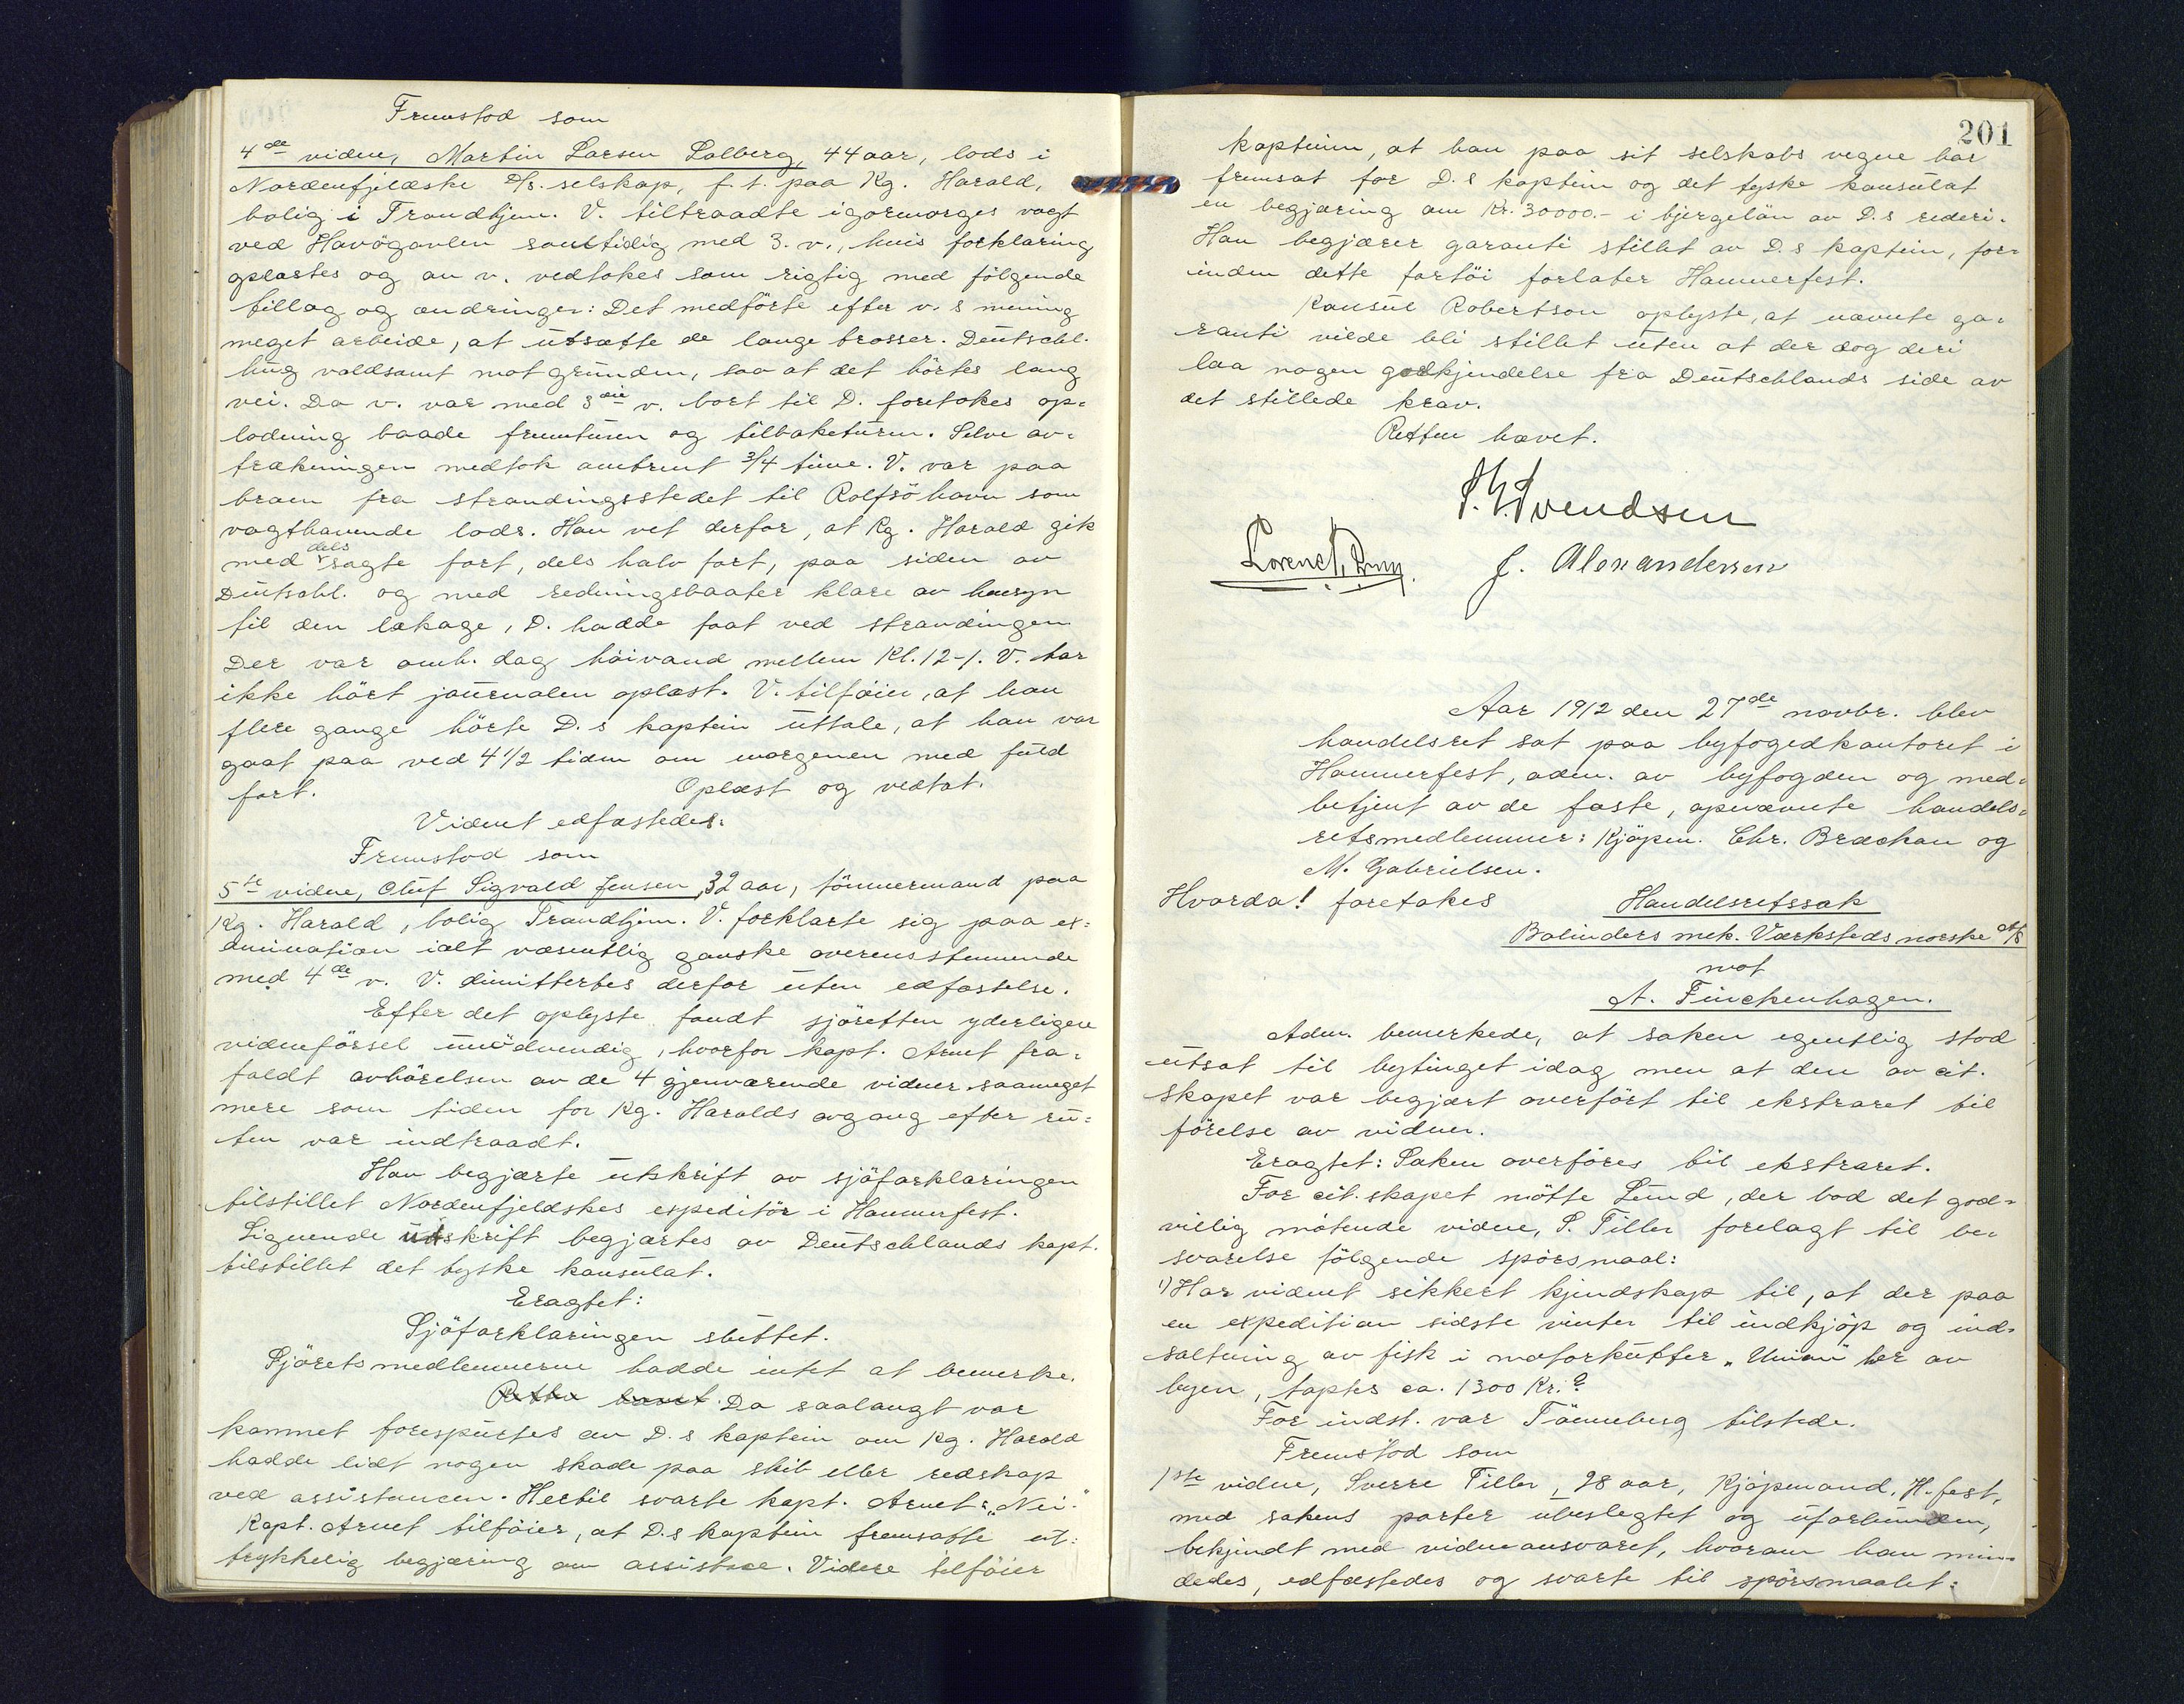 Fremstod som
4de vidne, Martin Larsen Solberg, 44 aar, lods i
Nordenfjeldske D/s. selskap, f. t. paa Kg. Harald,
bolig i Trondhjem. V. tiltraadte igaarmorges vagt
ved Havögavlen samtidig med 3. v., hvis forklaring
oplæstes og av v. vedtokes som rigtig med fölgende
tillæg og ændringer: Det medförte efter v.s mening
meget arbeide, at utsætte de lange trosser. Deutschl.
hug voldsomt mot grunden, saa at det hörtes lang
vei. Da v. var med 3die v. bort til D. foretokes op=
lodning baade fremturen og tilbaketuren. Selve av=
trækningen medtok omtrent 3/4 time. V. var paa
broen fra strandingsstedet til Rolfsöhavn som
vagthavende lods. Han vet derfor, at Kg. Harald gik
med dels sagte fart, dels halv fart, paa siden av
Deutschl. og med redningsbaater klare av hensyn
til den lækage, D. hadde faat ved strandingen
Der var omh. dag höivand mellem Kl. 12-1. V. har
ikke hört journalen oplæst. V. tilföier, at han
flere gange hörte D.s kaptein uttale, at han var
gaat paa ved 4 1/2 tiden om morgenen med fuld
fart. Oplæst og vedtat.
Vidnet edfæstedes.
Fremstod som
5te vidne, Oluf Sigvald Jensen, 32 aar, tömmermand paa
Kg. Harald, bolig Trondhjem. V. forklarte sig paa ex=
amination ialt væsentlig ganske overensstemmende
med 4de v. V. dimittertes derfor uten edfæstelse.
Efter det oplyste fandt sjöretten yderligere
vidneförsel unödvendig, hvorfor kapt. Arnet fra=
faldt avhörelsen av de 4 gjenværende vidner saameget
mere som tiden for Kg. Haralds avgang efter ru=
ten var indtraadt.
Han begjærte utskrift av sjöforklaringen
tilstillet Nordenfjeldskes expeditör i Hammerfest.
Lignende utskrift begjærtes av Deutschlands kapt.
tilstillet det tyske konsulat.
Eragtet:
Sjöforklaringen sluttet.
Sjöretsmedlemmerne hadde intet at bemerke.
Retten hævet. Da saalangt var
kommet forespurtes av D.s kaptein om Kg. Harald
hadde lidt nogen skade paa skib eller redskap
ved assistancen. Hertil svarte kapt. Arnet: „Nei."
Kapt. Arnet tilföier, at D.s kaptein fremsatte ut=
trykkelig begjæring om assistce. Videre tilföier
201
kapteinen, at han paa sit selskabs vegne har
fremsat for D.s kaptein og det tyske konsulat
en begjæring om Kr. 30000.- i bjergelön av D.s rederi.
Han begjærer garanti stillet av D.s kaptein, for=
inden dette fartöi forlater Hammerfest.
Konsul Robertson oplyste, at nævnte ga=
ranti vilde bli stillet uten at der dog deri
laa nogen godkjendelse fra Deutschlands side av
det stillede krav.
Retten hævet.
Svendsen
J. Alexandersen
Aar 1912 den 27de novbr. blev
handelsret sat paa byfogedkontoret i
Hammerfest, adm. av byfogden og med=
betjent av de faste, opnævnte handels=
retsmedlemmer: Kjöpm. Chr. Brækan og
M. Gabrielsen.
Hvorda! foretokes Handelsretssak
Bolinders mek. Værksteds norske A/S
mot
A. Finckenhagen.
Adm. bemerkede, at saken egentlig stod
utsat til bytinget idag men at den av cit.
skapet var begjært overfört til ekstraret til
förelse av vidner.
Eragtet: Saken overföres til ekstraret.
For cit. skapet mötte Lund, der bad det god=
villig mötende vidne, S. Tiller forelagt til be=
svarelse fölgende spörsmaal:
1) Har vidnet sikkert kjendskap til, at der paa
en expedition sidste vinter til indkjöp og ind=
saltning av fisk i motorkutter „Union" her av
byen, taptes ca. 1300 Kr.?
For indst. var Tönneberg tilstede.
Fremstod som
1ste vidne, Sverre Tiller, 28 aar, Kjöpmand, H.fest,
med sakens parter ubeslegtet og uforbunden,
bekjendt med vidneansvaret, hvorom han min=
dedes, edfæstedes og svarte til spörsmaalet: